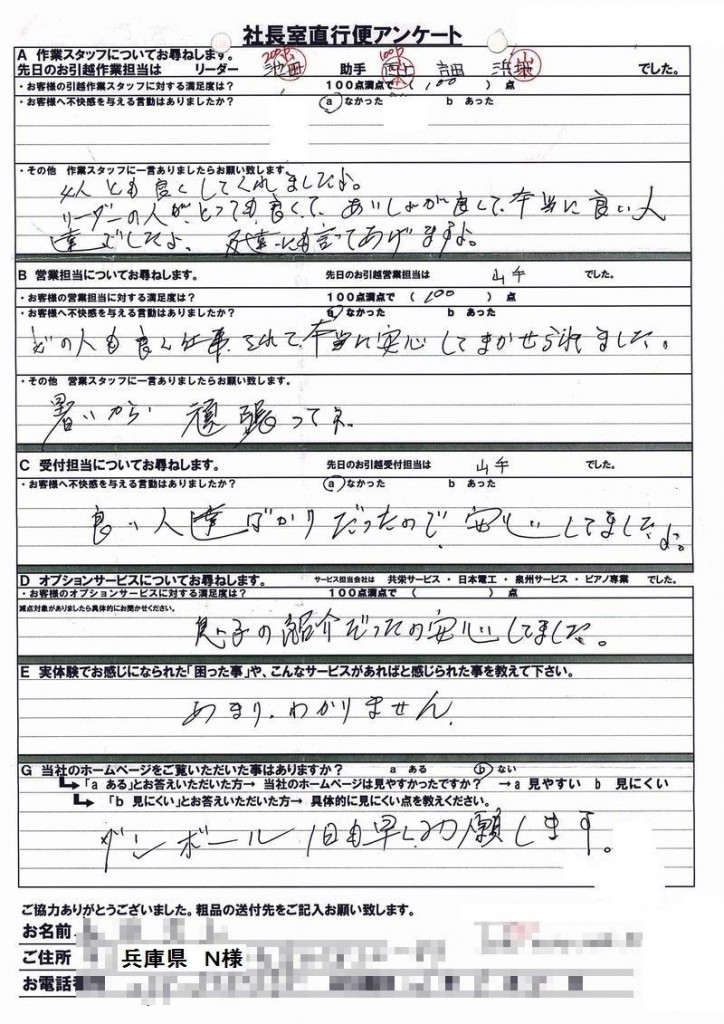 社長室直行便アンケート
A 作業スタッフについてお尋ねします。
先日のお引越作業担当は リーダー 池田 助手 吉田 でした。
・お客様の引越作業スタッフに対する満足度は? 100点満点で ( 100 ) 点
・お客様へ不快感を与える言動はありましたか? a なかった b あった
・その他 作業スタッフに一言ありましたらお願い致します。
4人とも良くしてくれましたよ。
リーダーの人が、とっても良くて、あいしょが良くて、本当に良い人
達でしたよ、友達にも言ってあげますよ。
B 営業担当についてお尋ねします。 先日のお引越営業担当は 山手 でした。
・お客様の営業担当に対する満足度は? 100点満点で ( 100 ) 点
・お客様へ不快感を与える言動はありましたか? a なかった b あった
どの人も良く仕事されて、本当に安心してまかせられました。
・その他 営業スタッフに一言ありましたらお願い致します。
暑いから 頑張ってネ
C 受付担当についてお尋ねします。 先日のお引越受付担当は 山手 でした。
・お客様へ不快感を与える言動はありましたか? a なかった b あった
良い人達ばかりだったので、安心してましたよ。
D オプションサービスについてお尋ねします。 サービス担当会社は 共栄サービス ・ 日本電工 ・ 泉州サービス ・ ピアノ専業 でした。
・お客様のオプションサービスに対する満足度は? 100点満点で ( ) 点
減点対象がありましたら具体的にお聞かせください。
息子の紹介だったの安心してました。
E 実体験でお感じになられた「困った事」や、こんなサービスがあればと感じられた事を教えて下さい。
あまり、わかりません。
G 当社のホームページをご覧いただいた事はありますか? a ある b ない
「a ある」とお答えいただいた方→ 当社のホームページは見やすかったですか? →a 見やすい b 見にくい
「b 見にくい」とお答えいただいた方→ 具体的に見にくい点を教えください。
ダンボール 1日も早くお願します。
ご協力ありがとうございました。粗品の送付先をご記入お願い致します。
お名前
ご住所 兵庫県 N様
お電話番